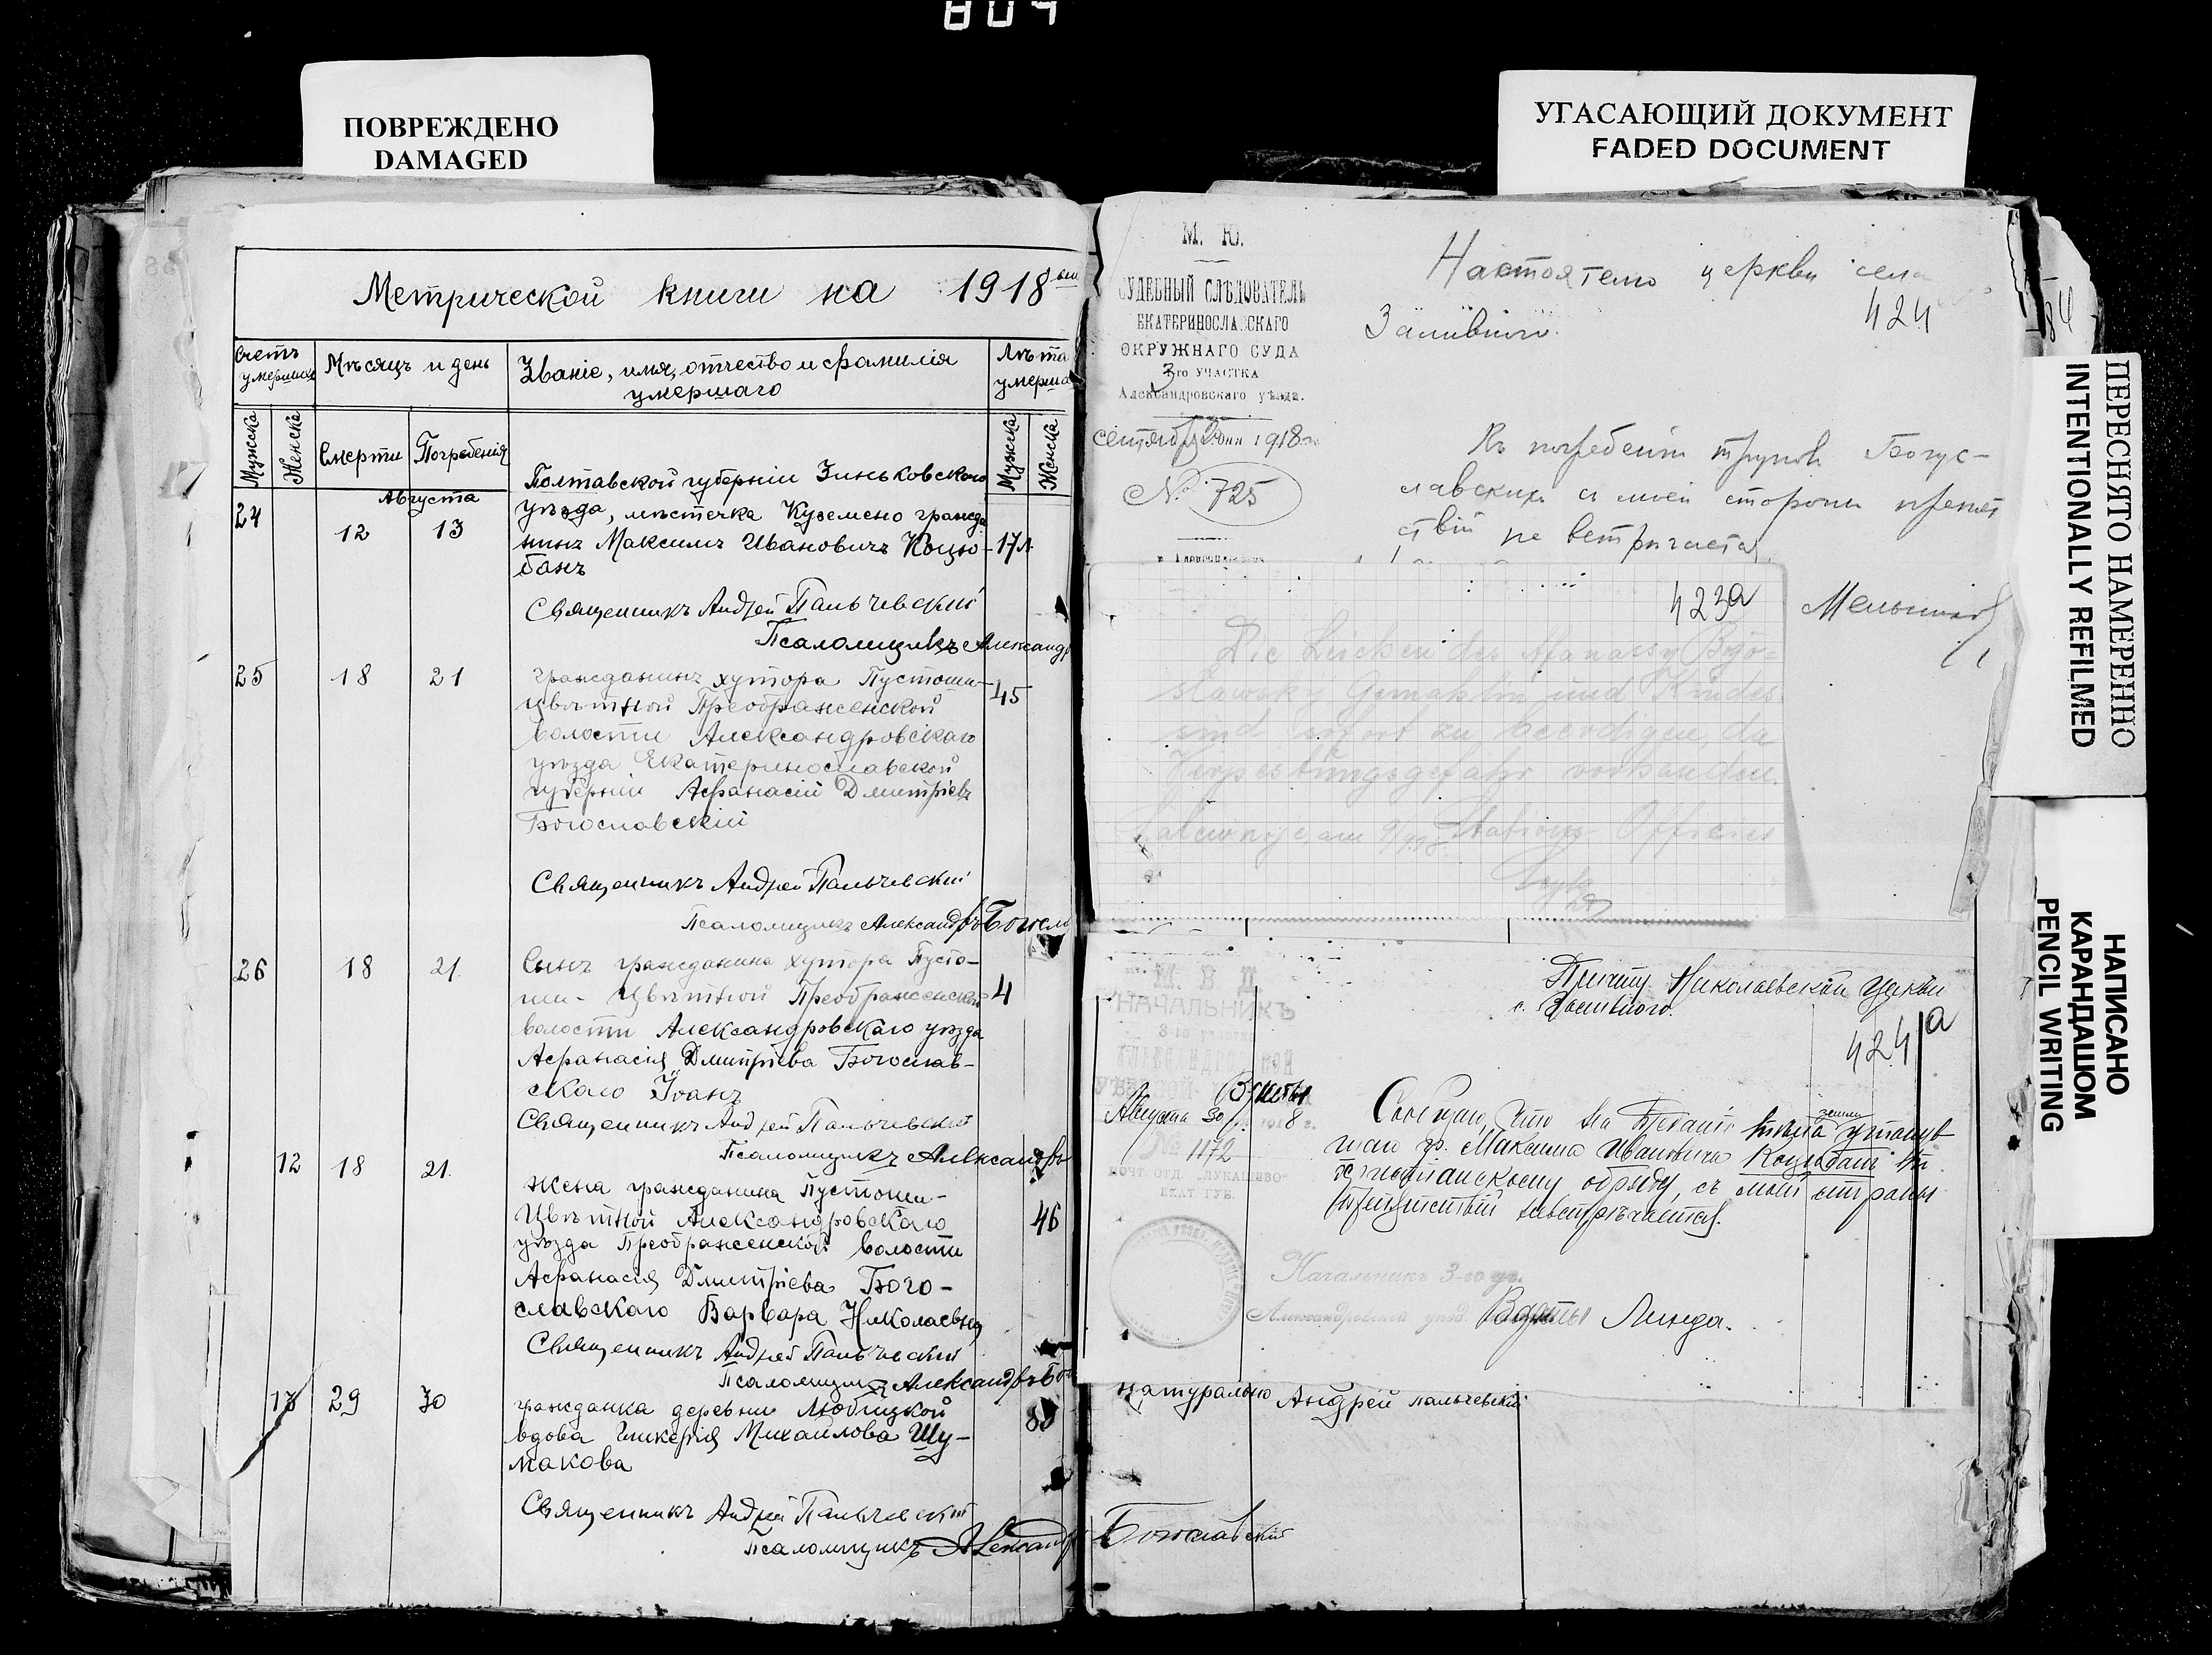 804
ПОВРЕЖДЕНО
DAMAGED
УГАСАЮЩИЙ ДОКУМЕНТ
FADED DOCUMENT
Метрической книги на 1918
Счетъ умершихъ
Мѣсяцъ и день
Званіе, имя, отчество и фамилія умершаго
Лѣта
Мужска
Женска
Смерти
Погребенія
Мужска
Женска
Августа
24
12
13
Полтавской губерніи Зиньковскаго
уѣзда, мѣстечка Куземено гражда
нинъ Максимъ Ивановичъ Коцю-
банъ
17 л.
Священникъ Андрей Пальчевский
Псаломщикъ Александръ
25
18
21
гражданинъ хутора Пустоши-
Цвѣтной Преображенской
волости Александровскаго
уѣзда Екатеринославской
губерніи Афанасій Дмитріевъ
Богославскій
45
Священникъ Андрей Пальчевский
Псаломщикъ Александръ Богосл
26
18
21.
Сынъ гражданина хутора Пусто-
ши-Цвѣтной Преображенской
волости Александровскаго уѣзда
Афанасія Дмитріева Богослав-
скаго Іоанъ
4
Священникъ Андрей Пальчевский
Псаломщикъ Александръ
12
18
21.
жена гражданина Пустоши-
Цвѣтной Александровскаго
уѣзда Преображенской волости
Афанасія Дмитріева Бого-
славскаго Варвара Николаевна
46
Священникъ Андрей Пальчевский
Псаломщикъ Александръ Бог
13
29
30
гражданка деревни Любицкой
вдова Гликерія Михайлова Шу-
макова
80
Священникъ Андрей Пальчевский
Псаломщикъ Александр
М. Ю.
СУДЕБНЫЙ СЛѢДОВАТЕЛЬ
ЕКАТЕРИНОСЛАВСКАГО
ОКРУЖНАГО СУДА
3го УЧАСТКА
Александровскаго уѣзда.
1918
№ 725
Настоятелю церкви села
424
Заливного.
Къ погребенію труповъ Богус-
лавскихъ съ моей стороны препят
ствій не встречается
423а
Die Leichen des Afanassy Bogo-
slawsky Gemahlin und Kindes
sind sofort zu beerdigen, da
Verpestungsgefahr vorhanden.
am 9/9 18. Stations-Offizier
Причту Николаевской Церкви
с. Заливного.
424а
М. В. Д.
НАЧАЛЬНИКЪ
Варты
Августа 30 1918 г.
№ 1172
ПОЧТ. ОТД. „ЛУКАШЕВО“
ЕКАТ. ГУБ.
Сообщаю, что на преданіе землѣ тѣла утонув
шаго гр. Максима Ивановича Коцюбанъ по
христіанскому обряду, съ моей стороны
препятствій невстрѣчается.
Начальникъ 3-го уч.
Александровской уѣзд. Варты Линда.
натурально Андрей пальчевскій
Богославскій
ПЕРЕСНЯТО НАМЕРЕННО
INTENTIONALLY REFILMED
НАПИСАНО
КАРАНДАШОМ
PENCIL WRITING